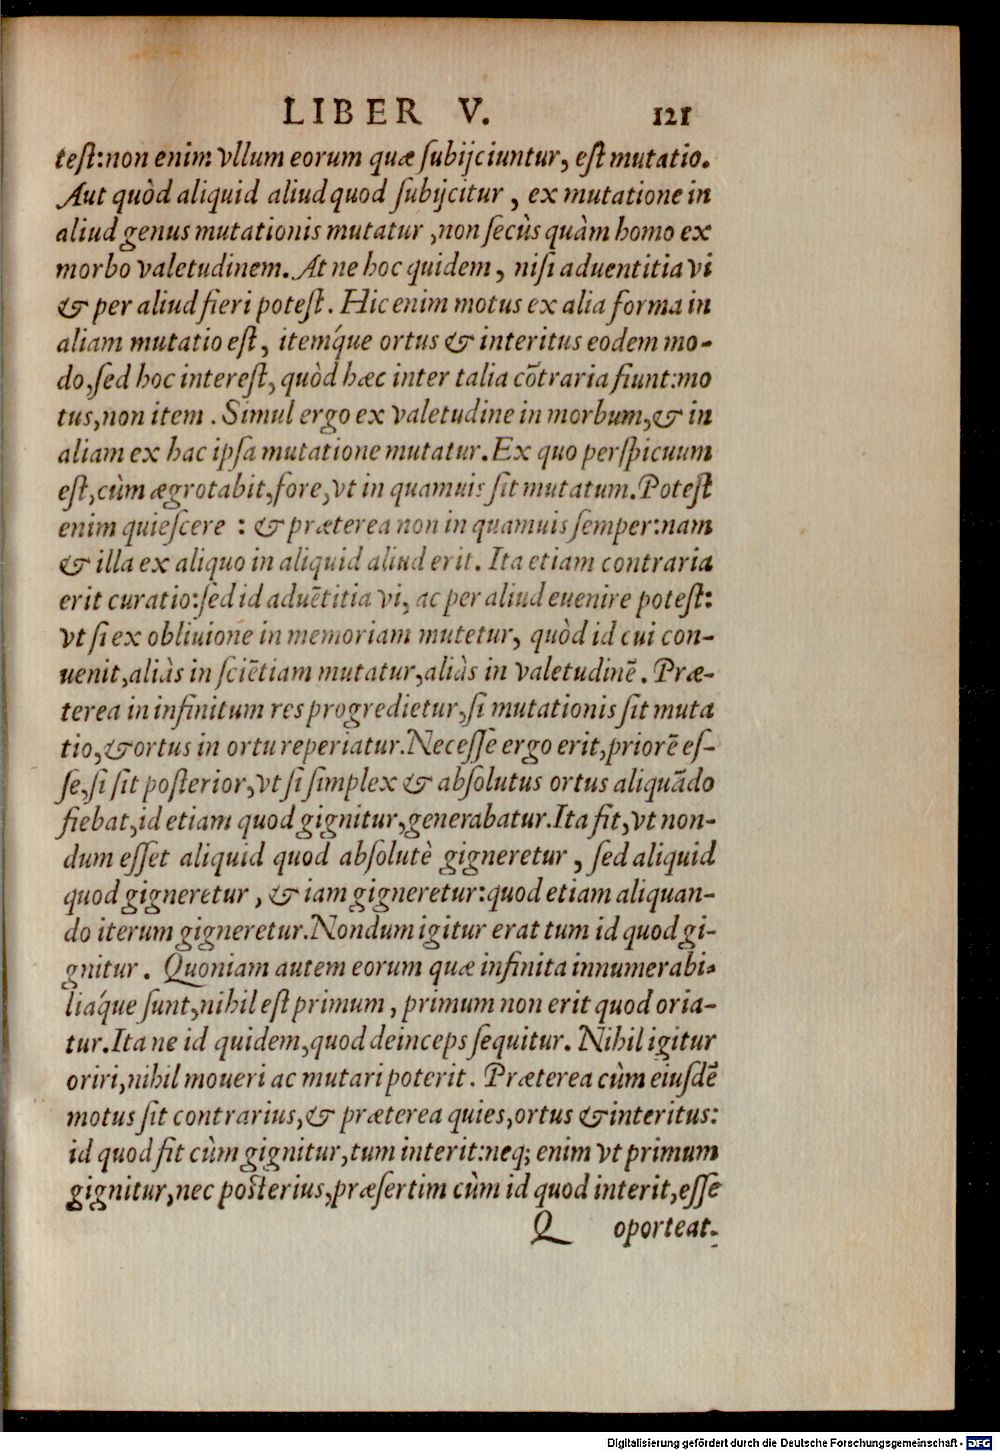 LIBER V. 121
test: non enim vllum eorum quæ subijciuntur, est mutatio.
Aut quòd aliquid aliud quod subijcitur, ex mutatione in
aliud genus mutationis mutatur, non secùs quàm homo ex
morbo valetudinem. At ne hoc quidem, nisi aduentitia vi
& per aliud fieri potest. Hic enim motus ex alia forma in
aliam mutatio est, itémque ortus & interitus eodem mo-
do, sed hoc interest, quòd hæc inter talia cõtraria fiunt: mo
tus, non item. Simul ergo ex valetudine in morbum, & in
aliam ex hac ipsa mutatione mutatur. Ex quo perspicuum
est, cùm ægrotabit, fore, vt in quamuis sit mutatum. Potest
enim quiescere: & præterea non in quamuis semper: nam
& illa ex aliquo in aliquid aliud erit. Ita etiam contraria
erit curatio: sed id aduẽtitia vi, ac per aliud euenire potest:
vt si ex obliuione in memoriam mutetur, quòd id cui con-
uenit, aliàs in sciẽtiam mutatur, aliàs in valetudinẽ. Præ-
terea in infinitum res progredietur, si mutationis sit muta
tio, & ortus in ortu reperiatur. Necesse ergo erit, priorẽ es-
se, si sit posterior, vt si simplex & absolutus ortus aliquãdo
fiebat, id etiam quod gignitur, generabatur. Ita fit, vt non-
dum esset aliquid quod absolutè gigneretur, sed aliquid
quod gigneretur, & iam gigneretur: quod etiam aliquan-
do iterum gigneretur. Nondum igitur erat tum id quod gi-
gnitur. Quoniam autem eorum quæ infinita innumerabi-
liáque sunt, nihil est primum, primum non erit quod oria-
tur. Ita ne id quidem, quod deinceps sequitur. Nihil igitur
oriri, nihil moueri ac mutari poterit. Præterea cùm eiusdẽ
motus sit contrarius, & præterea quies, ortus & interitus:
id quod fit cùm gignitur, tum interit: neq; enim vt primum
gignitur, nec posterius, præsertim cùm id quod interit, esse
Q oporteat.
Digitalisierung gefördert durch die Deutsche Forschungsgemeinschaft - DFG